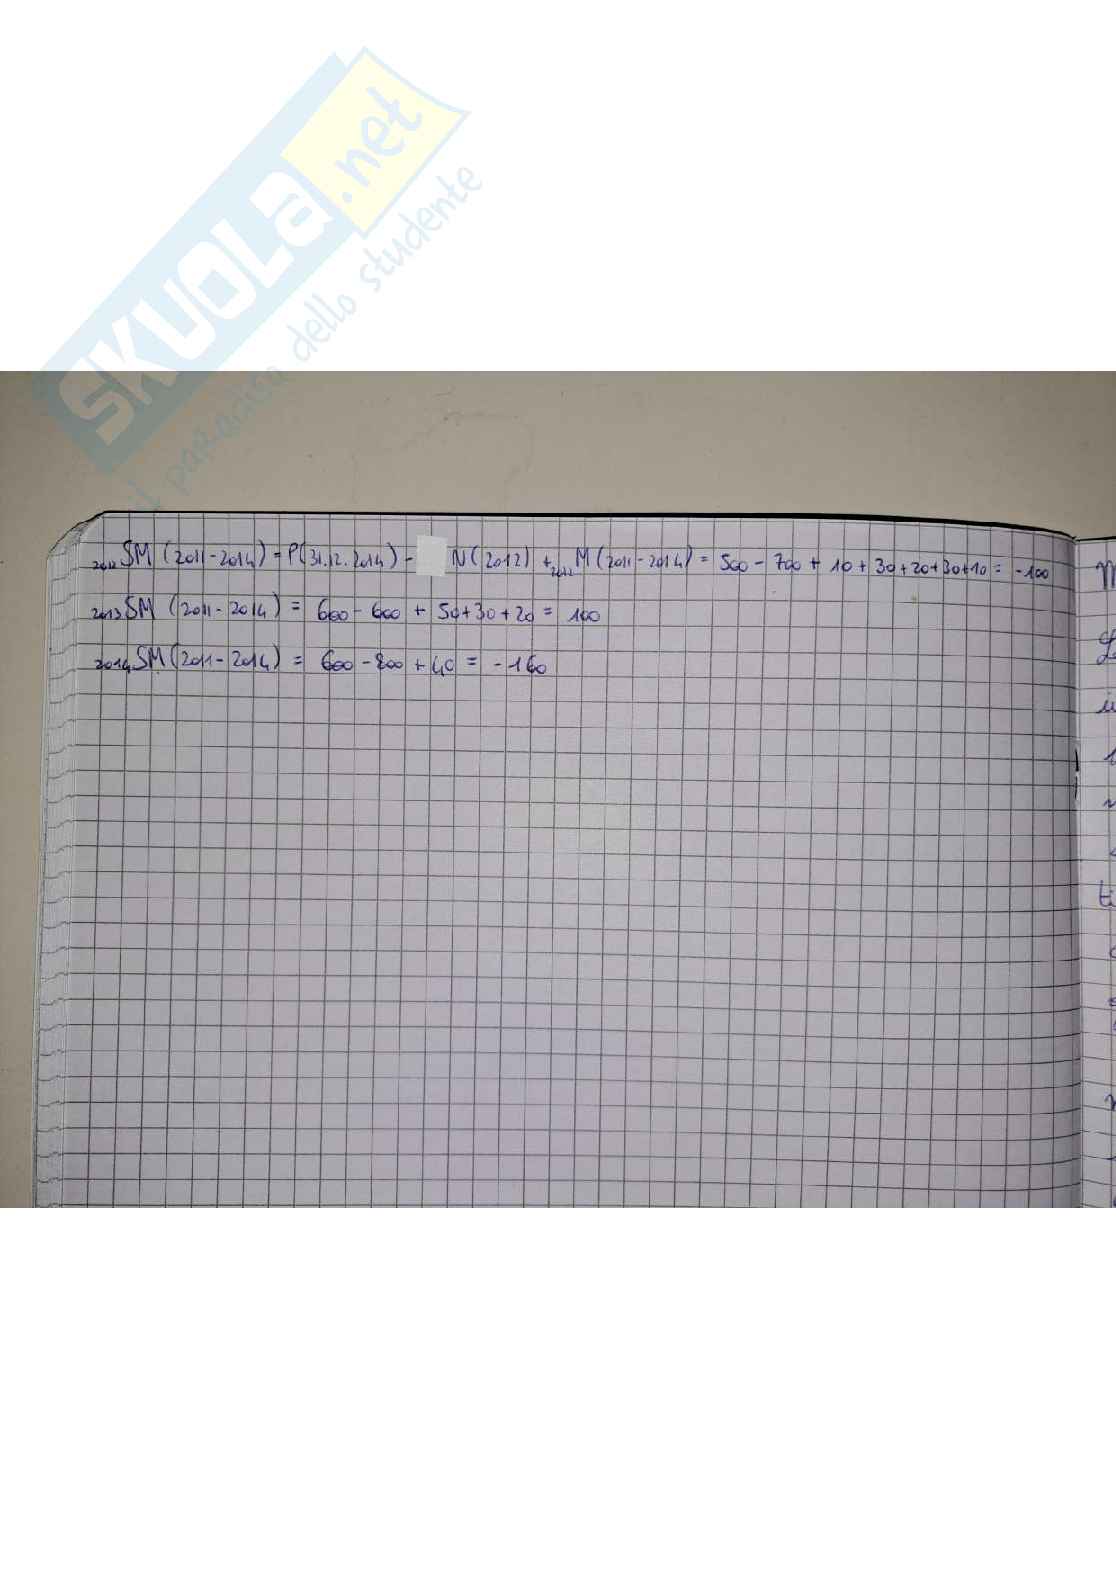 SKUOLA.net
il paradiso dello studente
2012SM (2011-2014) = P(31.12.2014) - N(2012) + 2012M(2011-2014) = 500 - 700 + 10 + 30 + 20 + 30 + 10 = -100
2013SM (2011-2014) = 600 - 600 + 50 + 30 + 20 = 100
2014SM (2011-2014) = 600 - 800 + 40 = -160